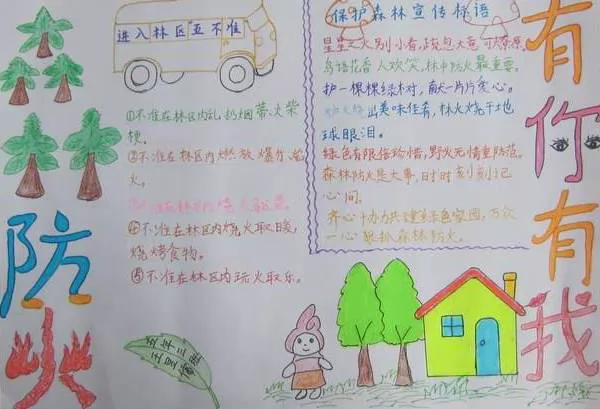 防火
有你有我
进入林区五不准
①不准在林区内乱扔烟蒂、火柴
梗。
②不准在林区内燃放爆竹、焰
火。
④不准在林区内烧火取暖,
烧烤食物。
⑤不准在林区内玩火取乐。
保护森林宣传标语
星星之火别小看,疏忽大意可燎原。
鸟语花香人欢笑,林中防火最重要。
护一棵棵绿树,献一片片爱心。
出美味佳肴,林火烧干地
球眼泪。
绿色有限倍珍惜,野火无情重防范。
森林防火是大事,时时刻刻记
心间。
齐心协力共建绿色家园,万众
一心 森林防火。
五年三班